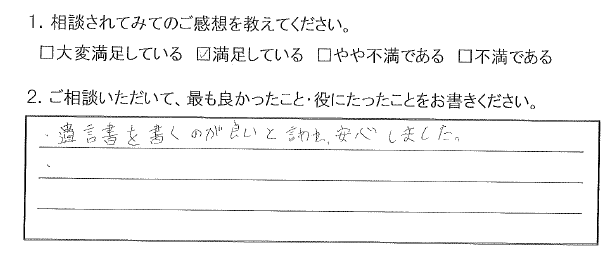 1. 相談されてみてのご感想を教えてください。
□大変満足している ☑満足している □やや不満である □不満である
2. ご相談いただいて、最も良かったこと・役にたったことをお書きください。
・遺言書を書くのが良いと言われ、安心しました。
・